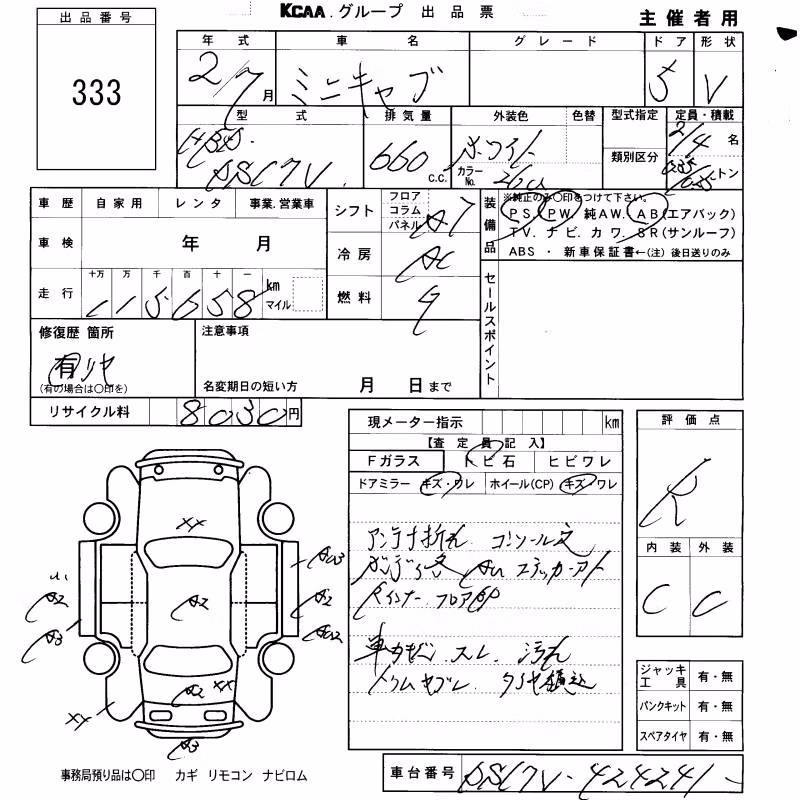 KCAA.グループ 出品票
主催者用
出品番号
333
年式 車名 グレード ドア 形状
2/7月 ミニキャブ 5 V
型式 排気量 外装色 色替 型式指定 定員・積載
HBD-
DS17V 660 c.c. ホワイト カラーNo. 26U 類別区分 2/4 名 トン
車歴 自家用 レンタ 事業.営業車
シフト フロア コラム パネル A7
装備品 ※純正のみ〇印をつけて下さい。
PS. PW. 純AW. AB(エアバック)
TV. ナビ. カワ. SR(サンルーフ)
ABS ・ 新車保証書←(注) 後日送りのみ
車検 年 月
冷房 AC
走行 十万 万 千 百 十 一
115658 km マイル
燃料
セールスポイント
修復歴 箇所
有 リヤ
(有の場合は〇印を)
注意事項
名変期日の短い方 月 日まで
リサイクル料 8030円
現メーター指示 km
【査定員記入】
Fガラス トビ石 ヒビワレ
ドアミラー キズ・ワレ ホイール(CP) キズ・ワレ
アンテナ折れ コンソール
ステッカーアト
インナー フロア
スレ 汚れ
評価点
R
内装 外装
C C
XX
A2
A2
A3
A2
A2 XX
XX
A3
ジャッキ工具 有・無
パンクキット 有・無
スペアタイヤ 有・無
事務局預り品は〇印 カギ リモコン ナビロム
車台番号 DS17V-424241-